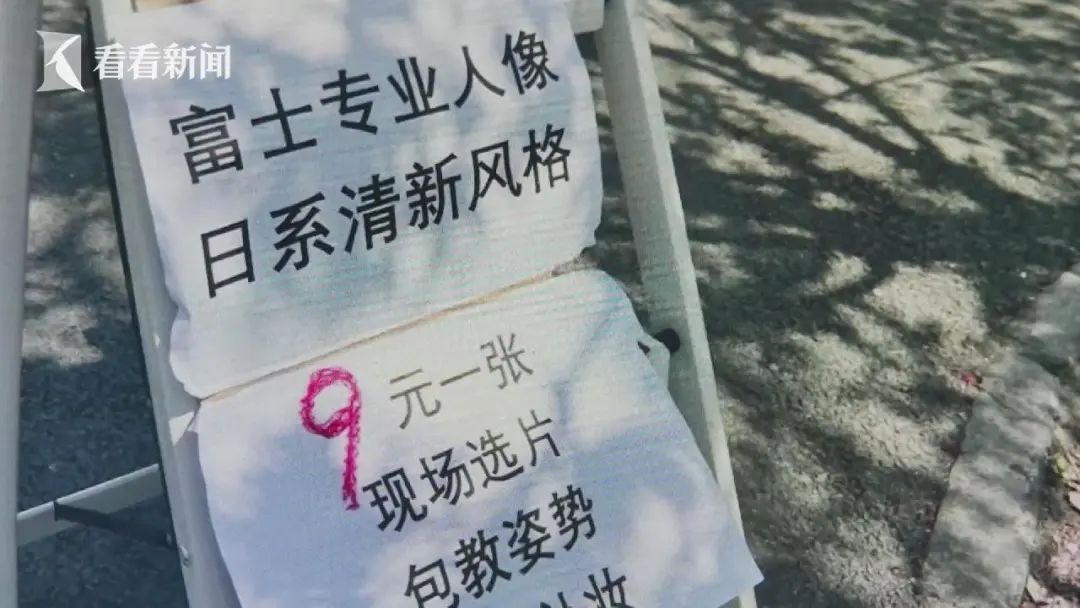 看看新闻
富士专业人像
日系清新风格
9元一张
现场选片
包教姿势
补妆